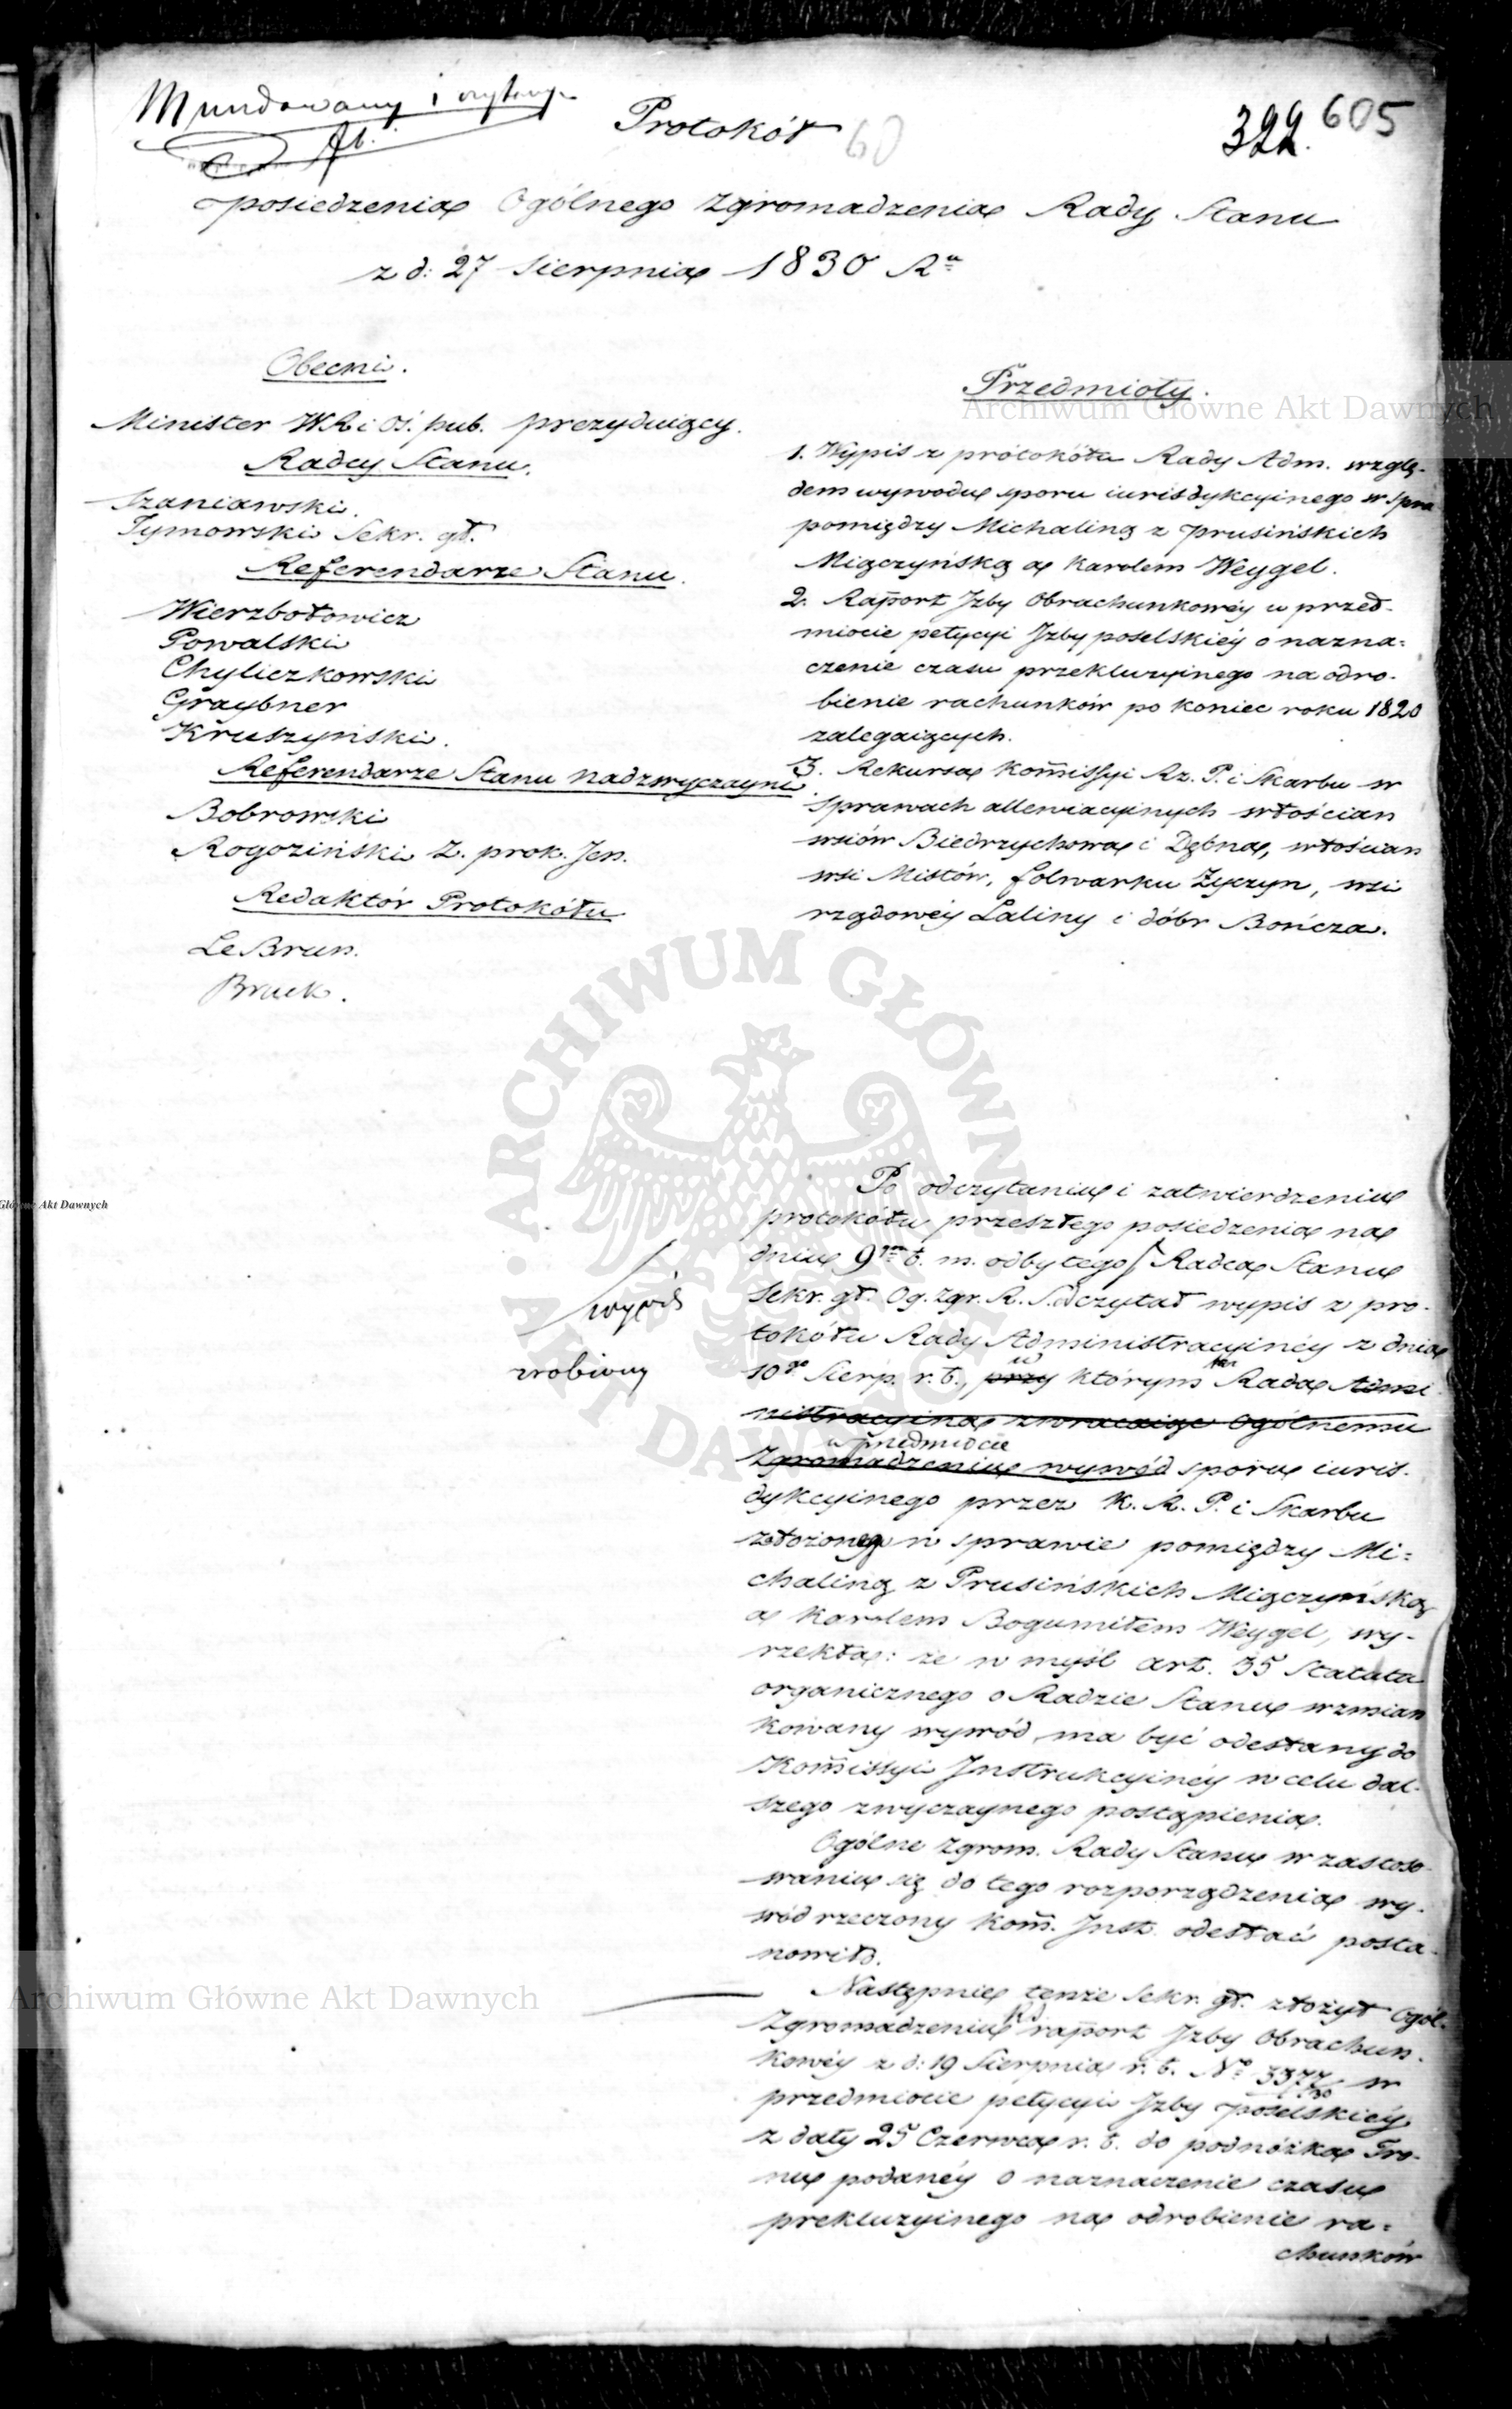 Mundowany i czytany
Protokół
60
322. 605
posiedzenia Ogólnego Zgromadzenia Rady Stanu
z d: 27 Sierpnia 1830 Rᵘ
Obecni.
Minister W.R. i Oś. pub. prezyduiący.
Radcy Stanu.
Szaniawski.
Tymowski Sekr. gł.
Referendarze Stanu.
Wierzbołowicz
Powalski
Chyliczkowski
Graybner
Kruszyński.
Referendarze Stanu nadzwyczayni.
Bobrowski
Rogoziński Z. prok. Jen.
Redaktór Protokółu
Le Brun.
Bruck.
Przedmioty.
1. Wypis z prótokółu Rady Adm. wzglę-
dem wywodu sporu iurisdykcyinego w spra
pomiędzy Michaliną z Prusińskich
Miączyńską a Karolem Weygel.
2. Raport Jzby Obrachunkowéy w przed-
miocie petycyi Jzby poselskiéy o nazna=
czenie czasu przekluzyinego na odro-
bienie rachunków po koniec roku 1820
zalegaiących.
3. Rekursa Kom̃issyi Rz. P. i Skarbu w
sprawach allewiacyinych włościan
wsiów Biedrzychowa i Dębna, włościan
wsi Mistów, folwarku Życzyn, wsi
rządowéy Laliny i dóbr Bończa.
Po odczytaniu i zatwierdzeniu
protokółu przeszłego posiedzenia na
dniu 9ᵐ t. m. odbytego Radca Stanu
Sekr. gł. Og. Zgr. R. S. odczytał wypis z pro-
tokółu Rady Administracyinéy z dnia
10ᵍᵒ Sierp. r. t., przy w którym Rada Admi
nistracyina zwracaiąc Ogólnemu
w przedmiocie
Zgromadzeniu wywód sporu iuris-
dykcyinego przez K. R. P. i Skarbu
złożonego w sprawie pomiędzy Mi=
chaliną z Prusińskich Miączyńską
a Karolem Bogumiłem Weygel, wy-
rzekła: że w myśl art. 35 Statutu
organicznego o Radzie Stanu wzmian
kowany wywód ma być odesłany do
Kom̃issyi Jnstrukcyinéy w celu dal-
szego zwyczaynego postąpienia.
Ogólne Zgrom. Rady Stanu w zastoso-
waniu się do tego rozporządzenia wy-
wód rzeczony Kom̃. Jnst. odesłać posta-
nowiło.
Następnie tenże Sekr. gł. złożył Ogól.
Zgromadzeniu raport Jzby Obrachun-
kowéy z d: 19 Sierpnia r. t. Nº 3377 w
przedmiocie petycyi Jzby poselskiéy
z daty 25 Czerwca r. t. do podnóżka Tro-
nu podanéy o naznaczenie czasu
prekluzyinego na odrobienie ra=
chunków
wypis
zrobiony
Archiwum Główne Akt Dawnych
Główne Akt Dawnych
ARCHIWUM GŁÓWNE
AKT DAWNYCH
Archiwum Główne Akt Dawnych